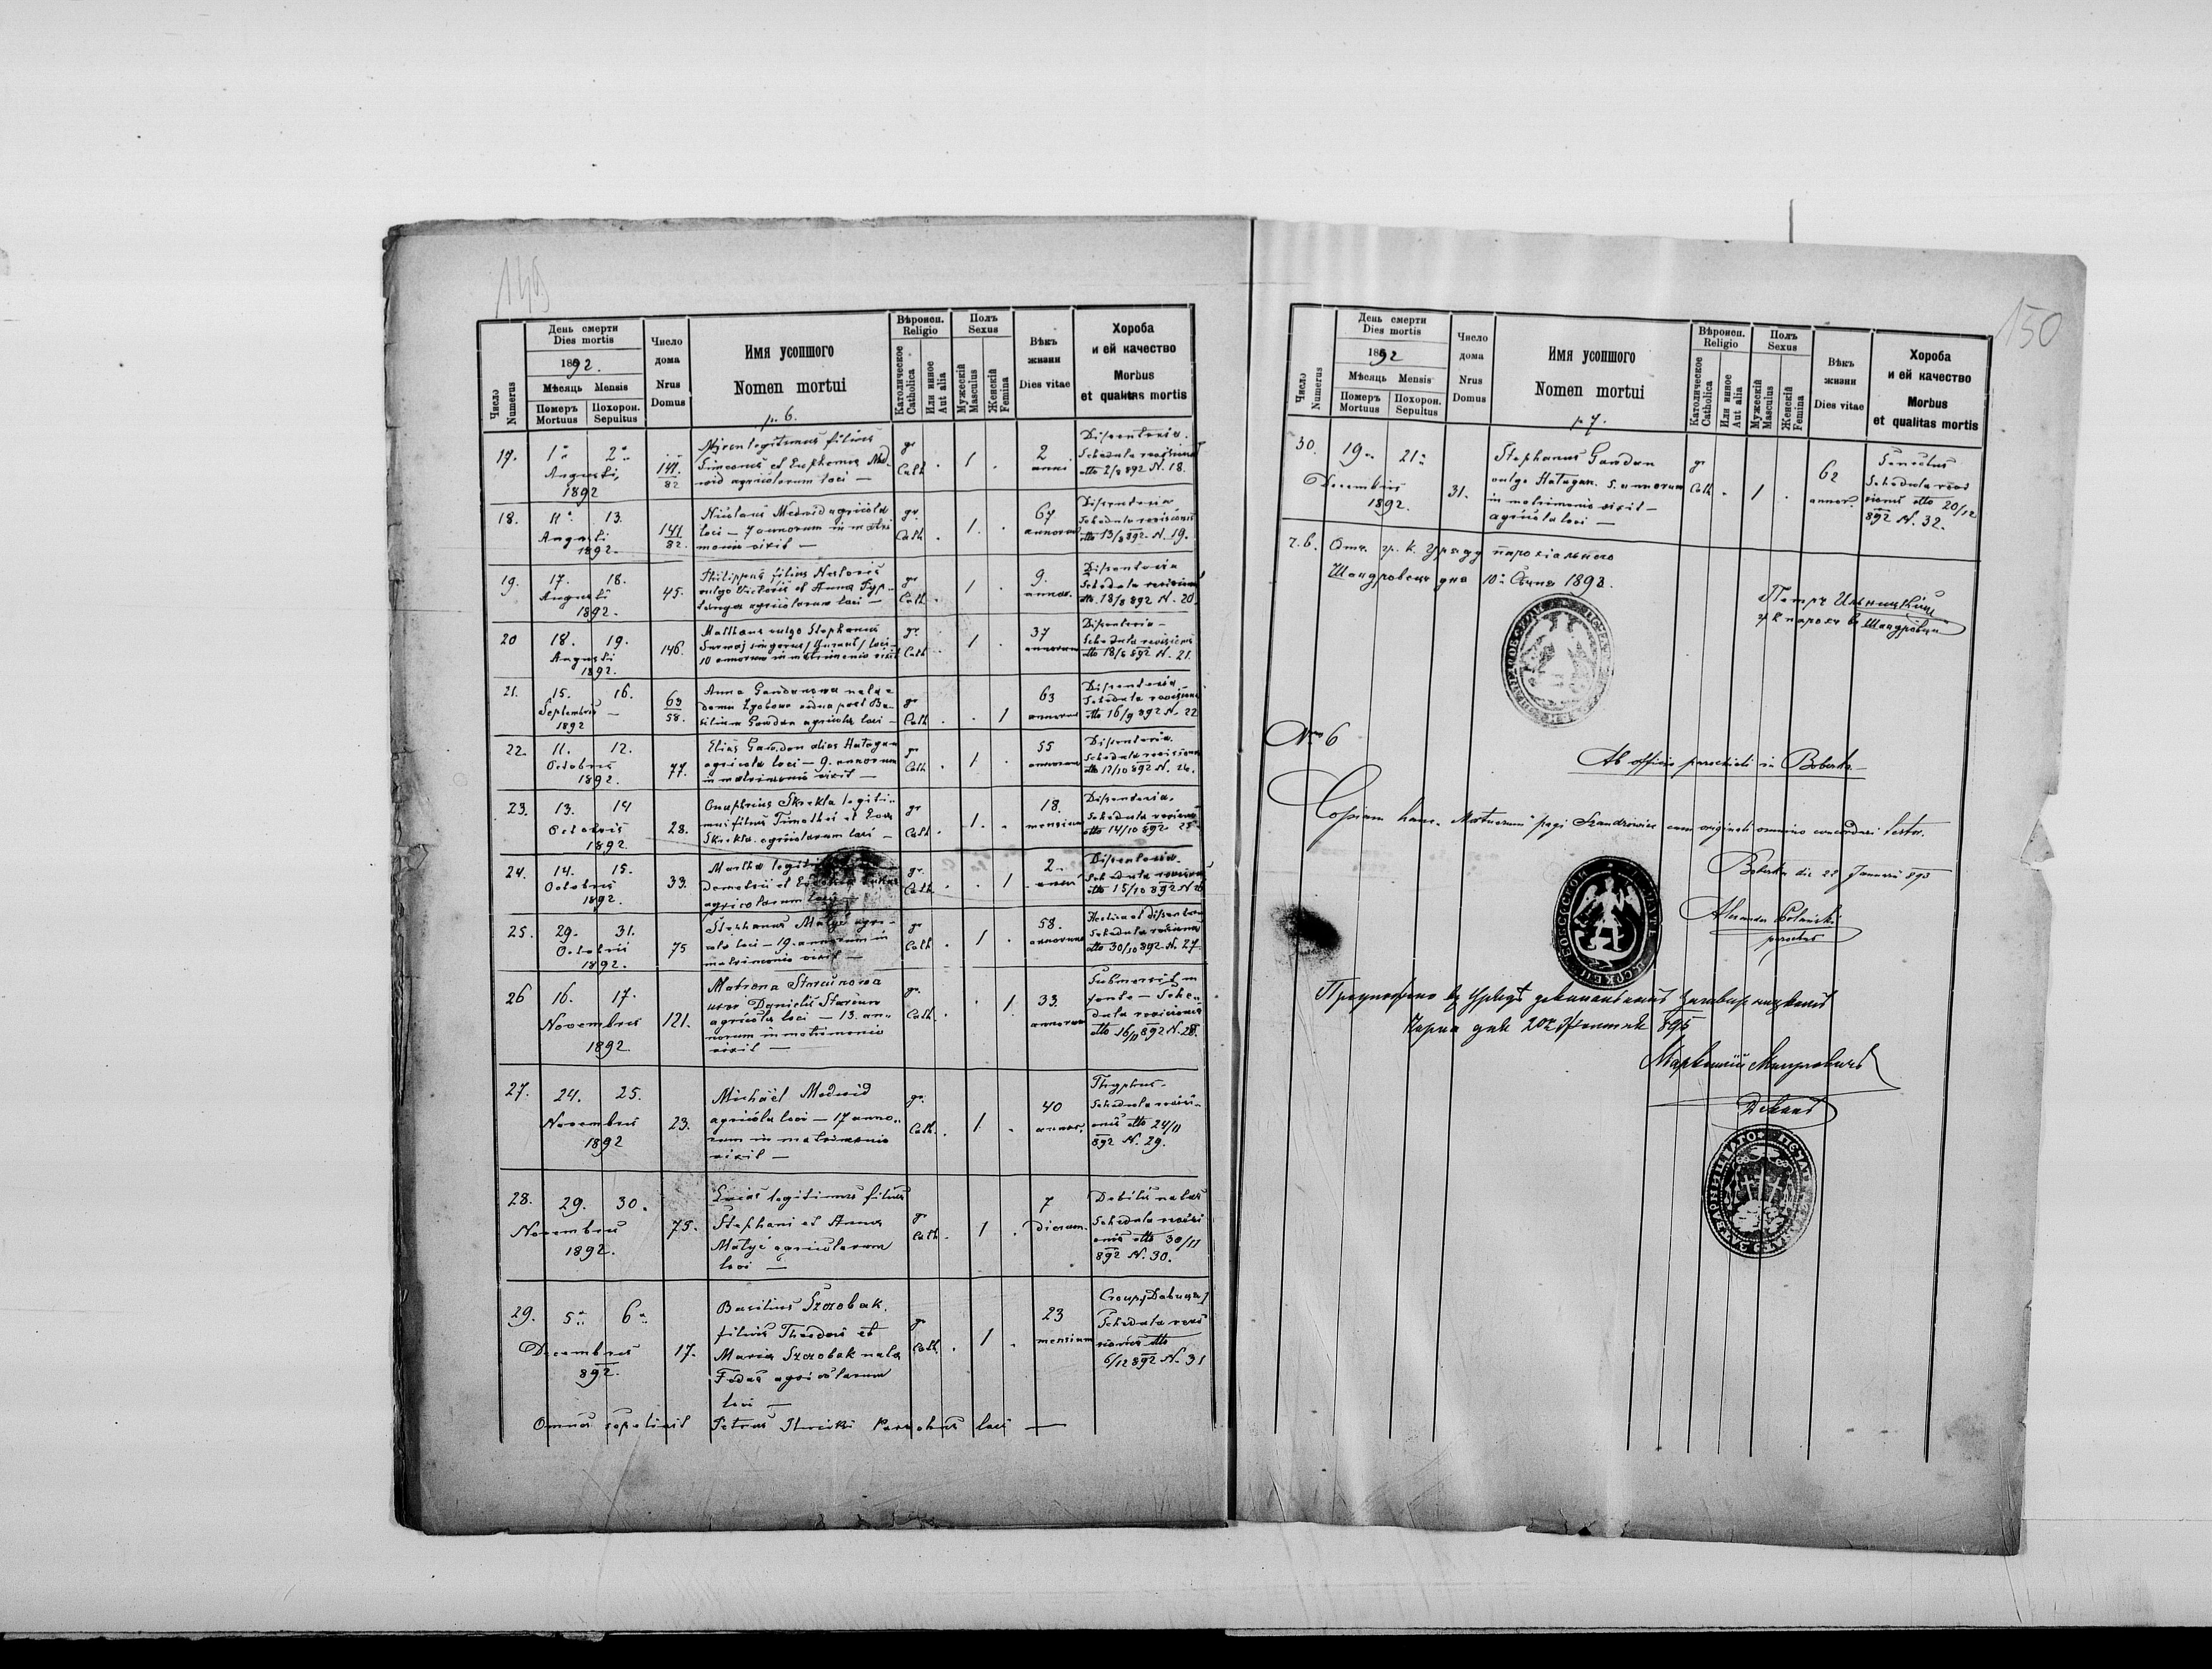 149
Число Numerus
День смерти
Dies mortis
1892.
Мѣсяць Mensis
Померъ Mortuus
Похорон. Sepultus
Число дома
Nrus Domus
Имя усопшого
Nomen mortui
p. 6.
Вѣроисп.
Religio
Католическое Catholica
Или инное Aut alia
Полъ
Sexus
Мужескій Masculus
Женскій Femina
Вѣкъ жизни
Dies vitae
Хороба
и ей качество
Morbus
et qualitas mortis
17. 1a 2a
Augusti,
1892
141/82
legitimus filius
Simeonis et Euphemia Med-
wid agricolarum loci —
gr Cath . 1 .
2 anni
Dissenteria.
Schedula revisionis
dtto 2/8 892 N. 18.
18. 11a 13.
Augusti
1892.
141/82.
Nicolaus Medwid agricola
loci — 7 annorum in matri
monio vixit —
gr. Cath . 1. .
67 annorum
Dissenteria
Schedula revisionis
dtto 13/8 892 N. 19.
19. 17. 18.
Augusti
1892.
45.
Philippus filius
vulgo et Anna
agricolarum loci —
gr Cath . 1 .
9. annor.
Dissenteria
Schedula revisionis
dtto 18/8 892 N. 20.
20 18. 19.
Augusti
1892.
146.
Matthaus vulgo Stephanus
loci
10 annorum in matrimonio vixit
gr. Cath . 1 .
37 annorum
Dissenteria —
Schedula revisionis
dtto 18/8 892 N. 21.
21. 15. 16.
Septembris —
1892
63/58.
Anna nata e
domo vidua post Ba-
silium Gawdan agricola loci —
gr Cath . . 1
63 annorum
Dissenteria
Schedula revisionis
dtto 16/9 892 N. 22
22. 11. 12.
Octobris
1892.
77.
Elias Gawdan alias Hatagan
agricola loci — 9. annorum
in matrimonio vixit —
gr Cath . 1 .
55 annorum
Dissenteria.
Schedula revisionis
dtto 12/10 892 N. 24.
23. 13. 14
Octobris
1892.
28.
Onuphrius Skrekla legiti-
mus filius Timothei et Eva
Skrekla agricolarum loci —
gr Cath . 1. .
18. mensium
Dissenteria.
Schedula revisionis
dtto 14/10 892 25
24. 14. 15.
Octobris
1892.
33.
Martha
Demetrii et
agricolarum loci —
gr. Cath . . 1
2. anni
Dissenteria.
Schedula revisionis
dtto 15/10 892 N 26
25. 29. 31.
Octobris
1892.
75
Stephanus Matyi agri-
cola loci — 19. annorum in
matrimonio vixit —
gr Cath . 1 .
58. annorum
Hectica et dissenteria
Schedula revisionis
dtto 30/10 892 N. 27
26 16. 17.
Novembris
1892.
121.
Matrona Starunowa
uxor Danielis Starun
agricola loci — 13. an-
norum in matrimonio
vixit —
gr. Cath. . . 1.
33. annorum
Submersit in
fonte — Sche-
dula revisionis
dtto 16/11 892 N. 28.
27. 24. 25.
Novembris
1892
23.
Michael Medwid
agricola loci — 17 anno-
rum in matrimonio
vixit —
gr. Cath. . 1. .
40 annor.
Thyphus —
Schedula revisi-
onis dtto 24/11
892 N. 29.
28. 29. 30.
Novembris
1892.
75.
Lucas legitimus filius
Stephani et Anna
Matyi agricolarum
loci —
gr Cath . 1 .
7 dierum.
Debilis natus
Schedula revisi
onis dtto 30/11
892 N. 30.
29. 5a 6a
Decembris
892.
17.
Basilius Szczobak.
filius Theodori et
Maria Szczobak nata
Fedas agricolarum
loci —
gr Cath. . 1 .
23 mensium
Croup/Давиця/
Schedula revi
sionis dtto
6/12 892 N. 31
Omnes sepelivit Petrus Ilnicki Parochus loci —
150
Число Numerus
День смерти
Dies mortis
1892
Мѣсяць Mensis
Померъ Mortuus
Похорон. Sepultus
Число дома
Nrus Domus
Имя усопшого
Nomen mortui
p 7.
Вѣроисп.
Religio
Католическое Catholica
Или инное Aut alia
Полъ
Sexus
Мужескій Masculus
Женскій Femina
Вѣкъ жизни
Dies vitae
Хороба
и ей качество
Morbus
et qualitas mortis
30. 19a 21a
Decembris
1892.
31.
Stephanus Gawdan
vulgo Hatagan. 5. annorum
in matrimonio vixit —
agricola loci —
gr Cath . 1 .
62 annor.
Senectus
Schedula revi
sionis dtto 20/12
892 N. 32.
ч. 6. Отъ гр. к. уряду парохіального
Шандровець дня 10. Січня 1893.
Петръ Ильницкій
гр к парохъ въ Шандровци
Nro 6
Ab officio parochiali in Boberka —
Copiam hanc Mortuorum pagi Szandrowiec cum originali omnino concordare testor.
Boberka die 28 Januarii 893
Alexander Polański
parochus
895
Деканъ